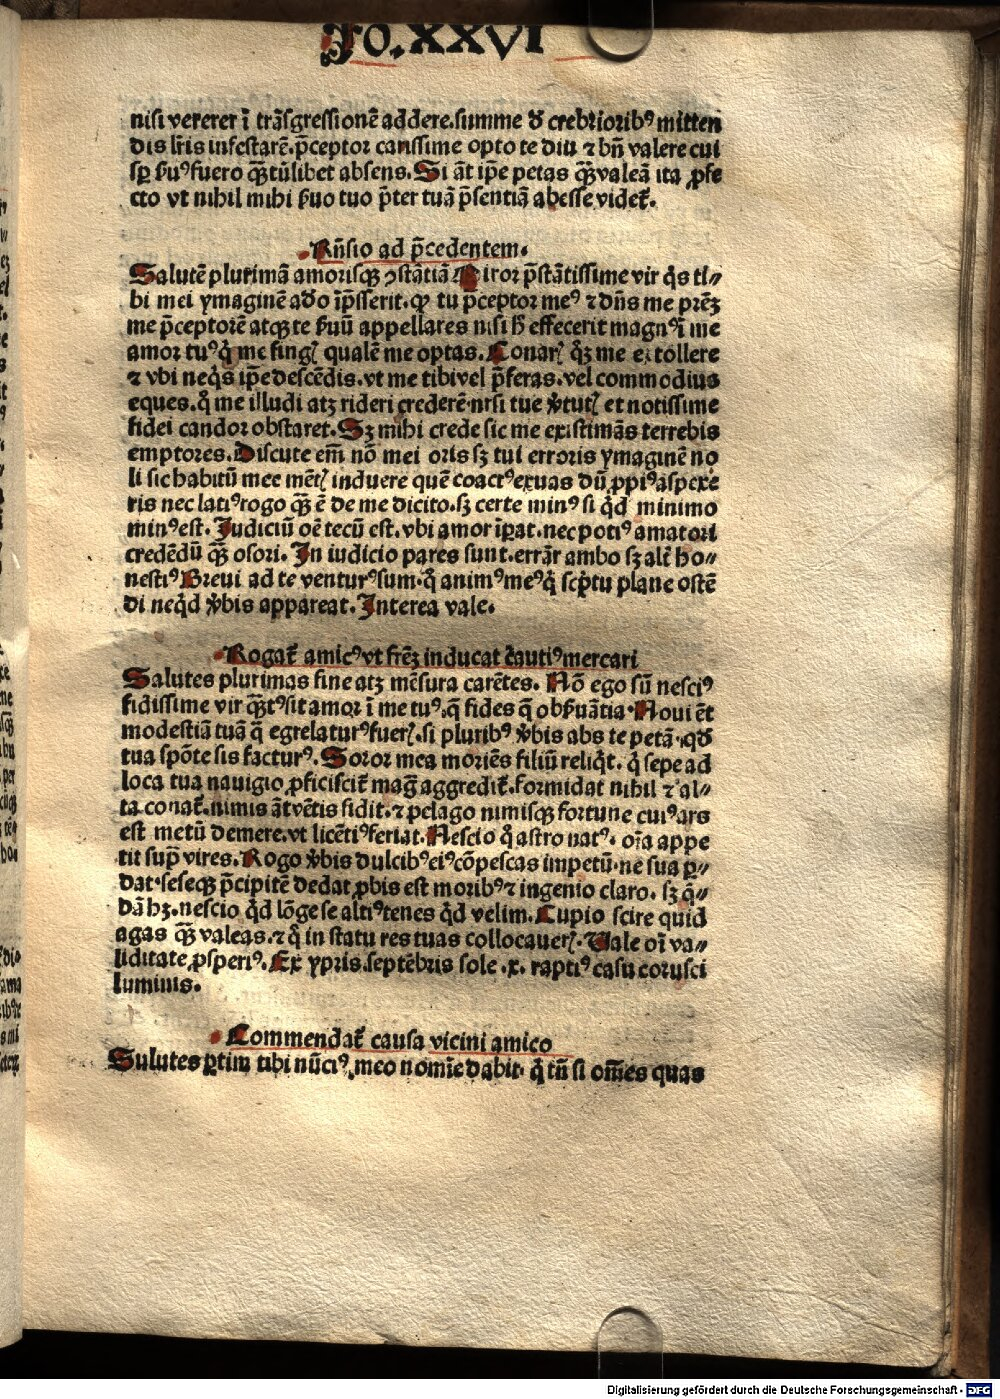 Fo. XXVI
nisi vererer ī trāsgressionē addere. summe đ crebrioribꝰ mitten
dis lr̄is infestarē. p̄ceptor carissime opto te diu ⁊ bn̄ valere cui
sꝑ ẜuꝰ fuero qꝙ̄tūlibet absens. Si āt ip̄e petas qꝙ̄ valeā ita ꝓfe
cto vt nihil mihi ẜuo tuo p̄ter tuā p̄sentiā abesse videt᷑.
Rn̄sio ad p̄cedentem.
Salutē plurimā amorisqꝫ ꝯstātiā Miror p̄stātissime vir q̄s ti⸗
bi mei ymaginē adeo īp̄sserit. ꝙ tu p̄ceptor meꝰ ⁊ dn̄s me pr̄eꝫ
me p̄ceptorē atqꝫ te ẜuū appellares nisi h̄ effecerit magnꝰ ī me
amor tuꝰ q̄ me fingꝭ qualē me optas. Conarꝭ qꝫ me extollere
⁊ vbi neq̄s ip̄e descēdis. vt me tibi vel p̄feras. vel commodius
eques. q̄ me illudi atꝫ rideri crederē. nisi tue v̓tutꝭ et notissime
fidei candor obstaret. Sꝫ mihi crede sic me existimās terrebis
emptores. Discute em̄ nō mei oris sꝫ tui erroris ymaginē no
li sic habitū mee mētꝭ induere quē coactꝰ exuas dū ꝓpiꝰ aspexe
ris nec latiꝰ rogo qꝙ̄ ē de me dicito. sꝫ certe minꝰ si q̄d minimo
minꝰ est. Judiciū oē tecū est. vbi amor īp̄at. nec potiꝰ amatori
credēdū qꝙ̄ osori. In iudicio pares sunt. errār ambo sꝫ alt̄ ho⸗
nestiꝰ Brevi ad te venturꝰ sum. q̄ animꝰ meꝰ q̄ sc̓ptu plane ostē
di neq̄d v̓bis appareat. Interea vale.
Rogat᷑ amicꝰ vt fr̄eꝫ inducat c̄autiꝰ mercari
Salutes plurimas fine atꝫ mēsura carētes. Nō ego sū nesciꝰ
fidissime vir qꝙ̄tꝰ sit amor ī me tuꝰ. q̄ fides q̄ obẜuātia. Noui ēt
modestiā tuā q̄ egre laturꝰ fuerꝭ. si pluribꝰ v̓bis abs te petā. qđ
tua spōte sis facturꝰ. Soror mea moriēs filiū reliq̄t. q̄ sepe ad
loca tua nauigio ꝓficiscit᷑ maḡ aggredit᷑. formidat nihil ⁊ al⸗
ta conat᷑. nimis āt vētis fidit. ⁊ pelago nimisqꝫ fortune cuiꝰ ars
est metū demere. vt licētiꝰ feriat. Nescio q̄ astro natꝰ. oīa appe
tit sup̄ vires. Rogo v̓bis dulcibꝰ eiꝰ cōpescas impetū. ne sua ꝑ⸗
dat. seseqꝫ p̄cipitē dedat ꝓbis est moribꝰ ⁊ ingenio claro. sꝫ q̄⸗
dā hꝫ. nescio q̄d lōge se altiꝰ tenes q̄d velim. Cupio scire quid
agas qꝙ̄ valeas. ⁊ q̄ in statu res tuas collocauerꝭ. Vale oī va⸗
liditate ꝓsperiꝰ. Ex ypris. septēbris sole .x. raptiꝰ casu corusci
luminis.
Commendat᷑ causa vicini amico
Salutes ꝑtim tibi nūciꝰ meo nomīe dabit. q̄ tn̄ si om̄es quas
Digitalisierung gefördert durch die Deutsche Forschungsgemeinschaft - DFG